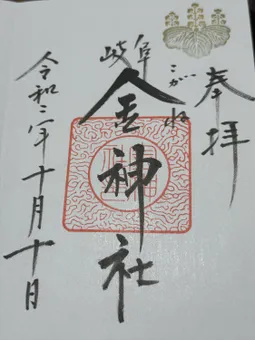 奉拝
岐阜
こがね
金神社
令和二年十月十日